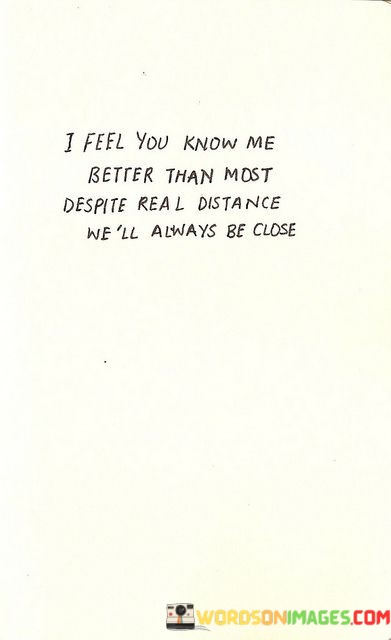 I FEEL YOU KNOW ME
BETTER THAN MOST
DESPITE REAL DISTANCE
WE'LL ALWAYS BE CLOSE
WORDSONIMAGES.COM